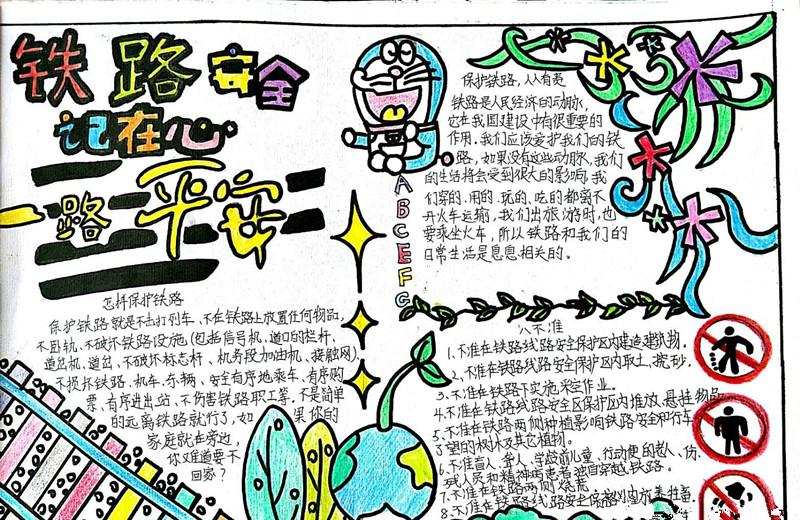 铁路安全
记在心
一路平安
怎样保护铁路
保护铁路就是不击打列车、不在铁路上放置任何物品,
不卧轨、不破坏铁路设施(包括信号机、道口的栏杆、
道岔机、道岔、不破坏标志杆、机务段加油机、接触网)、
不损坏铁路、机车、车辆、安全有序地乘车、有序购
票、有序进出站、不伤害铁路职工等、不是简单
的远离铁路就行了,如果你的
家庭就在旁边,
你难道要不
回家?
保护铁路,人人有责
铁路是人民经济的动脉,
它在我国建设中有很重要的
作用。我们应该爱护我们的铁
路,如果没有这些动脉,我们
的生活将会受到很大的影响,我
们穿的、用的、玩的、吃的都离不
开火车运输,我们出旅游时,也
要乘坐火车,所以铁路和我们的
日常生活是息息相关的。
A
B
C
E
F
G
八不准
1、不准在铁路线路安全保护区内建造建筑物。
2、不准在铁路线路安全保护区内取土、挖砂。
3、不准在铁路下实施采空作业。
4、不准在铁路线路安全区保护区内堆放、悬挂物品
5、不准在铁路两侧种植影响铁路安全和行车
了望的树木及其它植物。
6、不准盲人、聋人、学龄前儿童、行动不便的老人、伤
残人员和精神病患者独自穿越铁路。
7、不准在铁路两侧烧荒
8、不准在铁路线路安全保护区内放养牲畜。